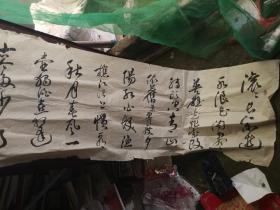 滚滚长江东逝
水浪花淘尽
英雄是非成败
转头空青山
依旧在几度夕
阳红白发渔
樵江渚上惯看
秋月春风一
壶浊酒喜逢